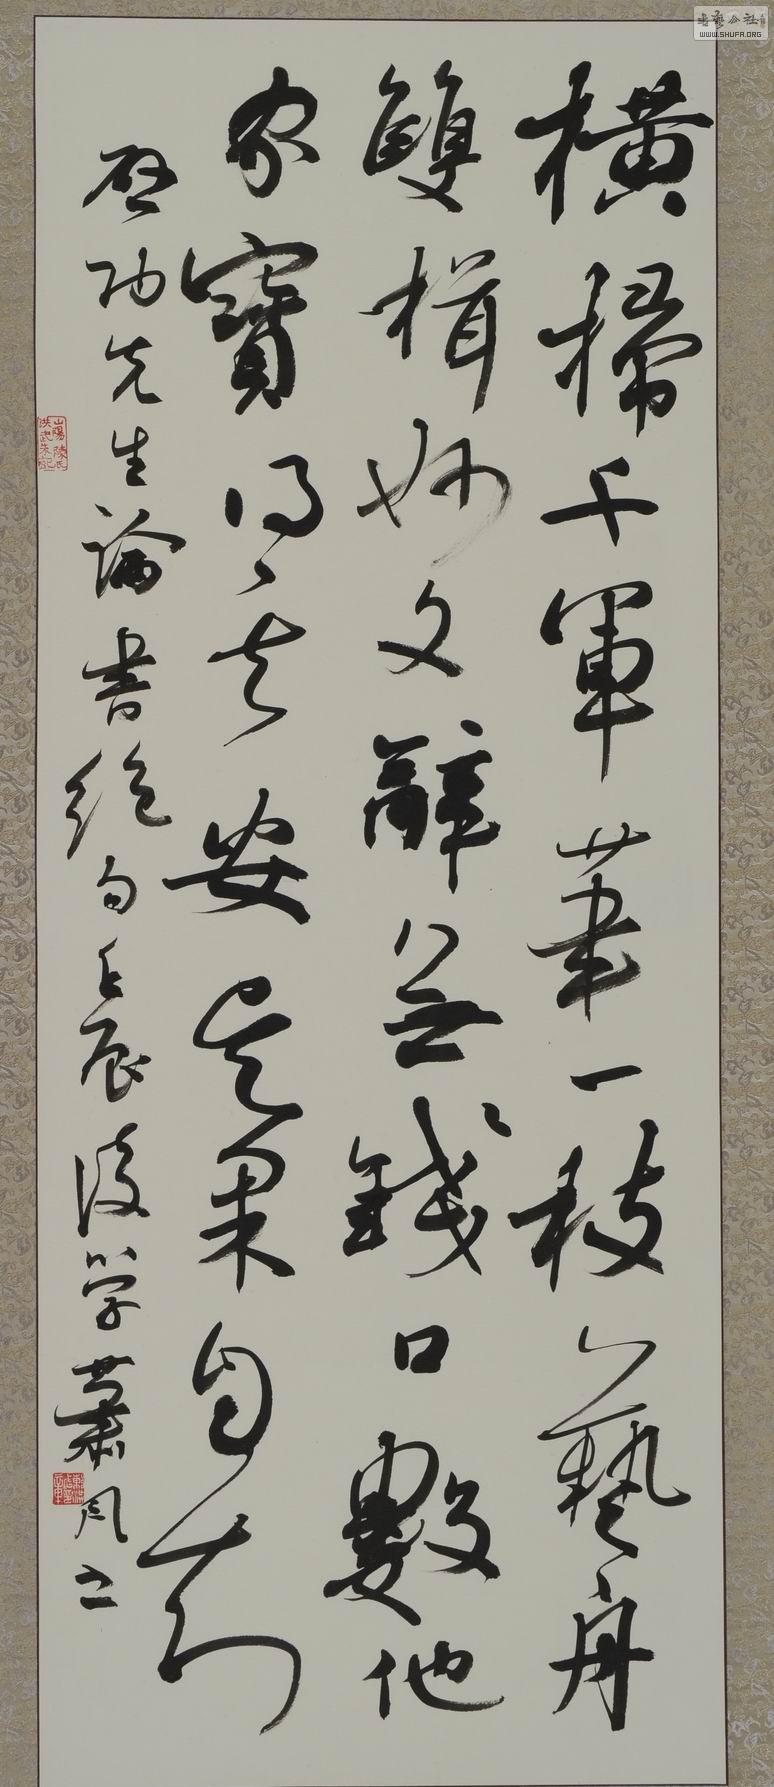 橫掃千軍筆一枝藝舟
雙楫妙文辭無錢口數他
家寶得失安吳果自知
啟功先生論書絕句壬辰後學蕭風书
書藝公社
WWW.SHUFA.ORG